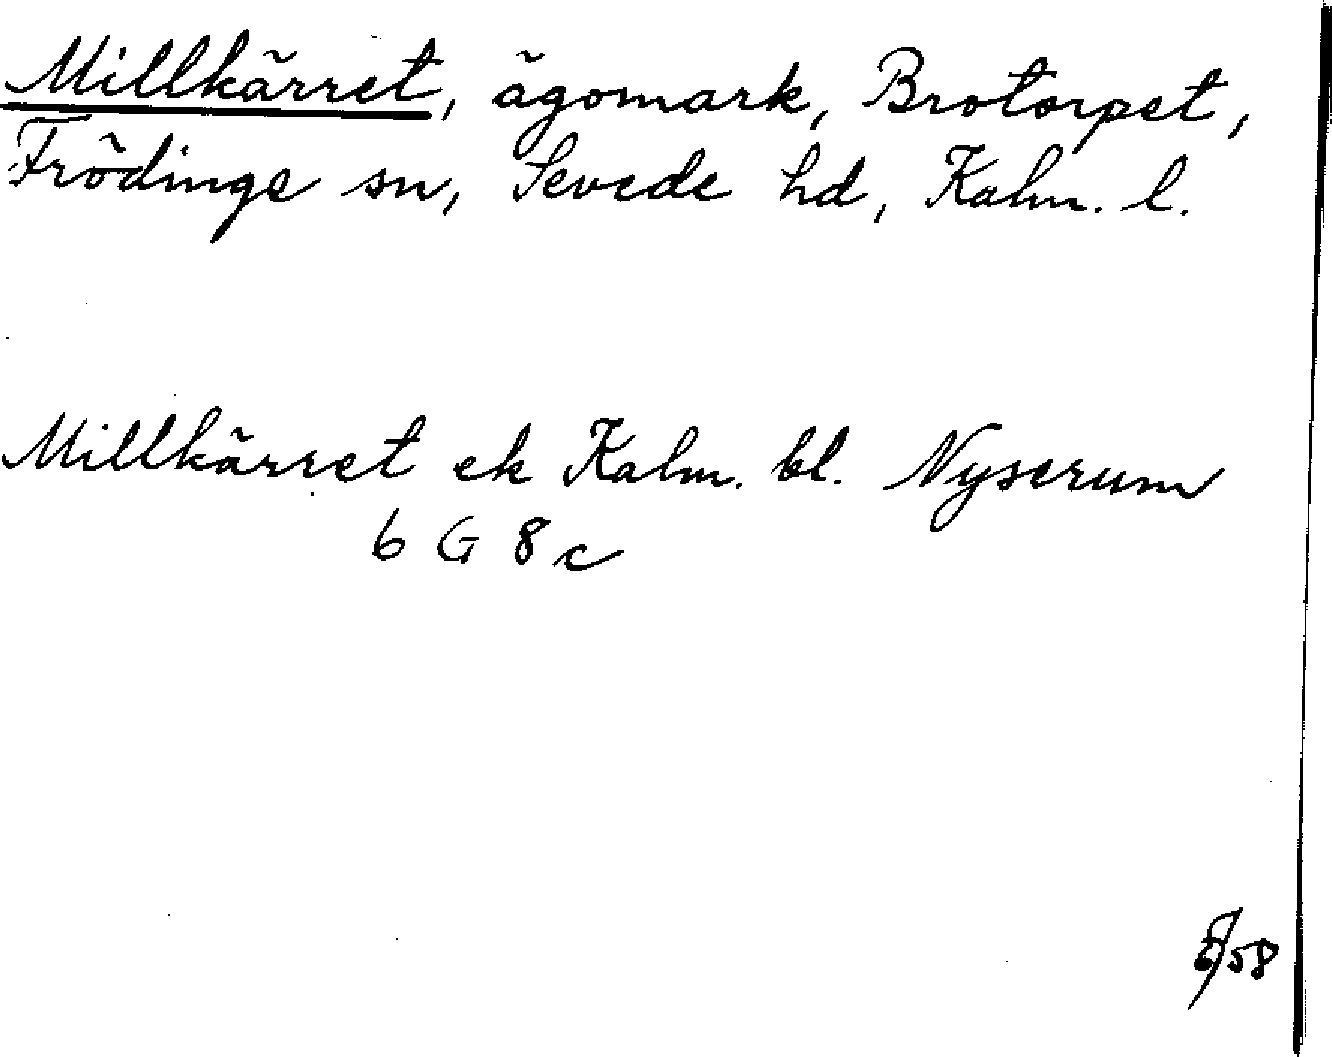 Millkärret, ägomark, Brotorpet,
Frödinge sn, Sevede hd, Kalm. l.
Millkärret ek Kalm. bl. Nyserum
6 G 8 c